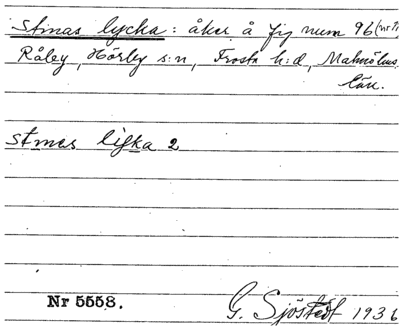 Stinas lycka: åker å fig num 96 (nr 7)
Råby, Hörby s:n, Frosta h:d, Malmöhus
län.
stinas lykka 2
Nr 5558.
G. Sjöstedt 1936